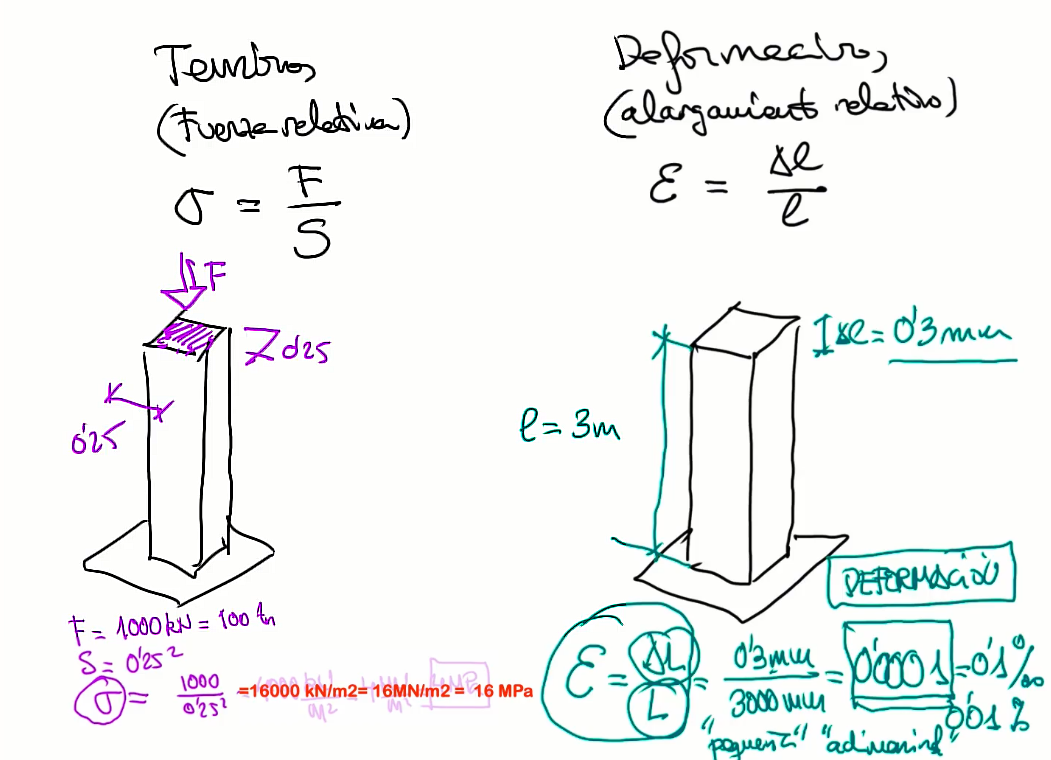 Tensión
(Fuerza relativa)
σ = F/S
F
0'25
0'25
F = 1000 kN = 100 tn
S = 0'25²
σ = 1000/0'25² =16000 kN/m2= 16MN/m2 = 16 MPa
Deformación
(alargamiento relativo)
ε = Δl/l
Δl = 0'3 mm
l = 3m
DEFORMACIÓN
ε = ΔL/L = 0'3 mm/3000 mm = 0'0001 = 0'1 ‰
0'01 %
"pequeña" "adimensional"